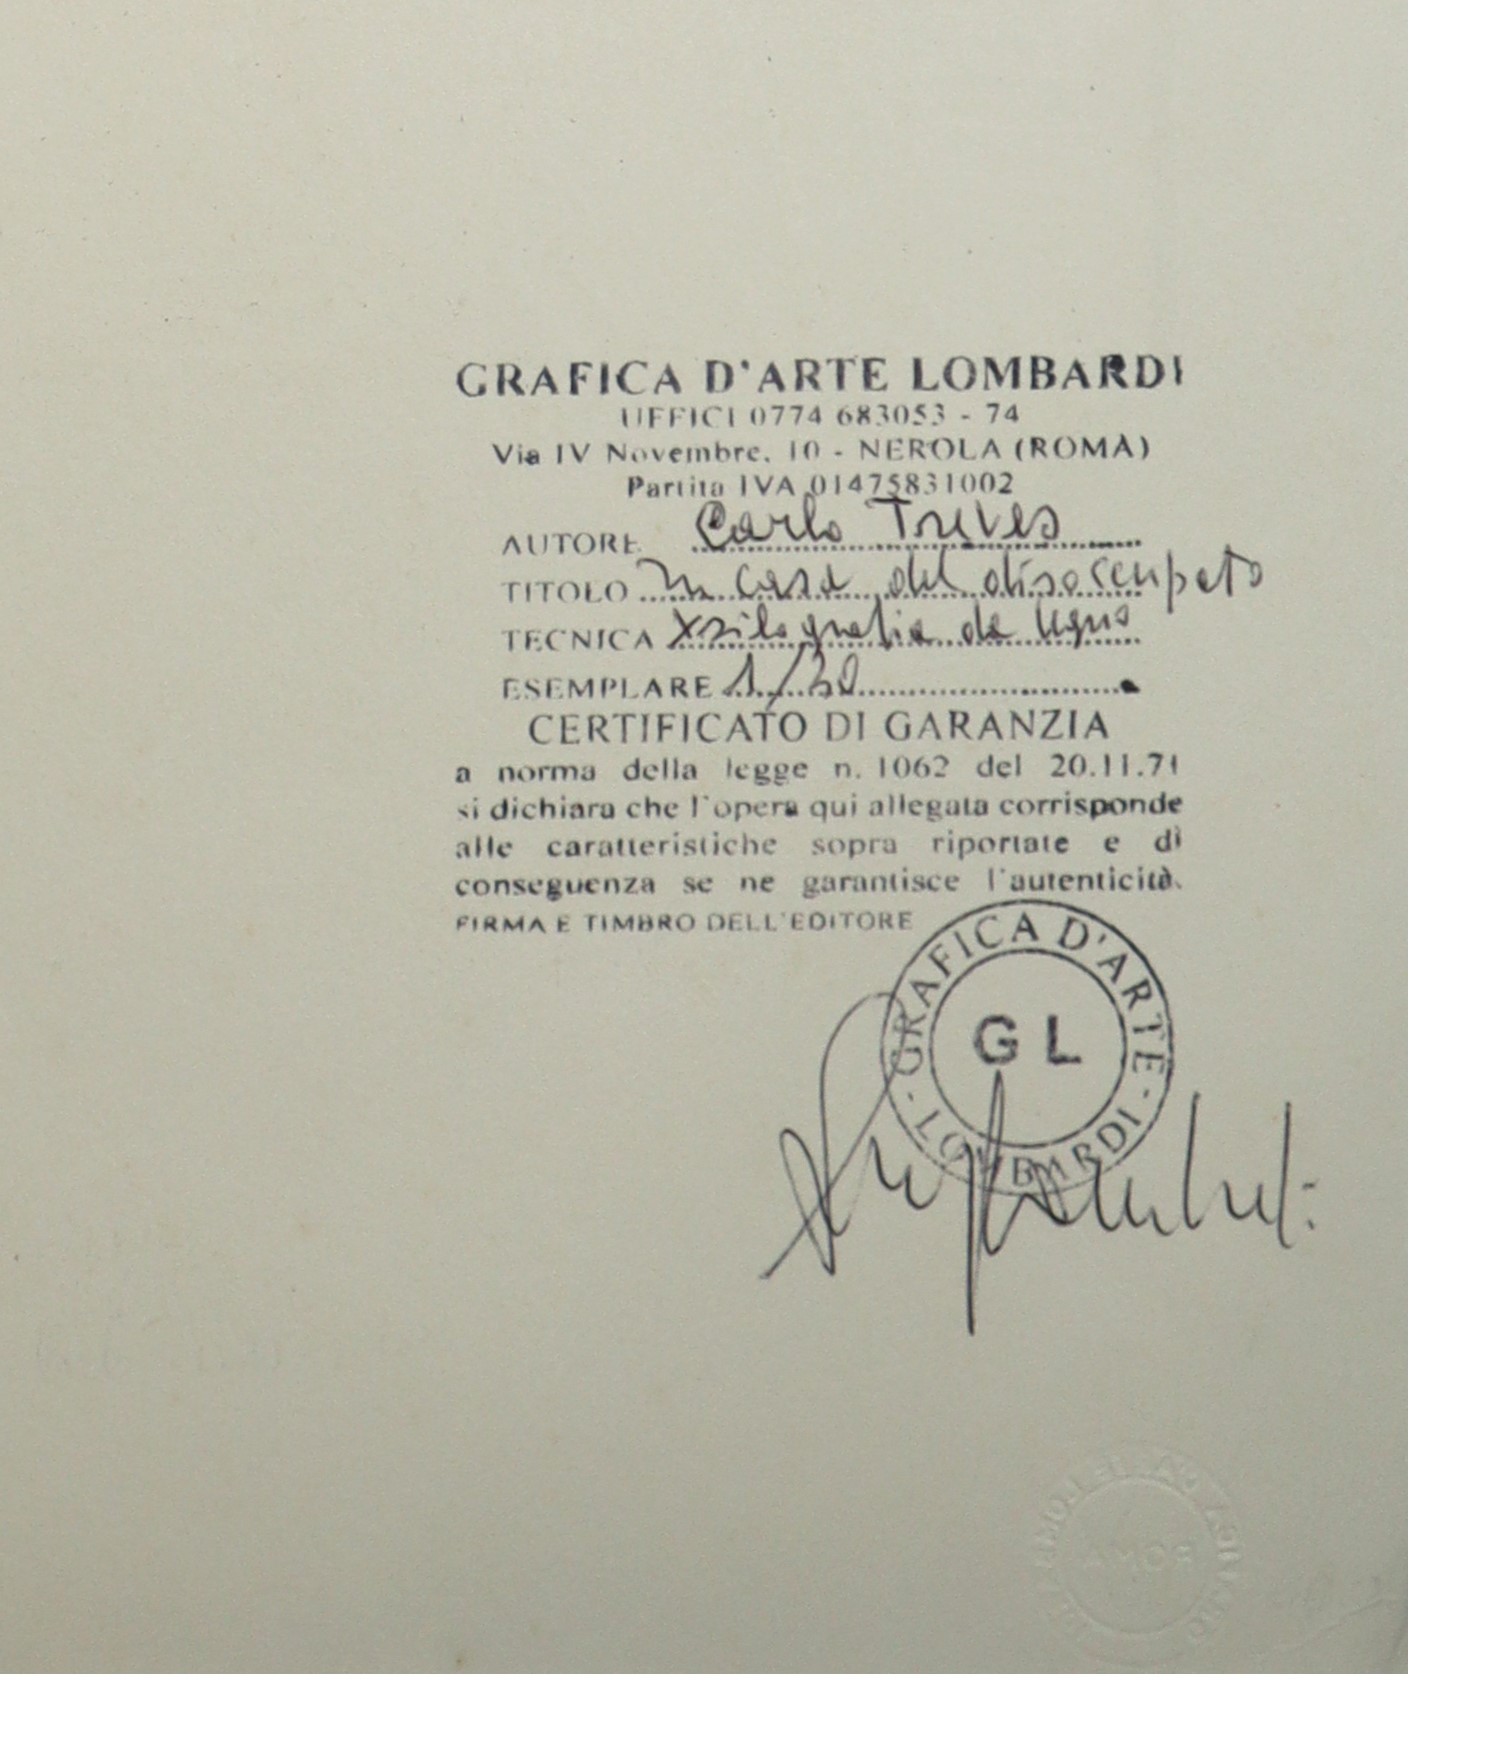 GRAFICA D'ARTE LOMBARDI
UFFICI 0774 683053 - 74
Via IV Novembre, 10 - NEROLA (ROMA)
Partita IVA 01475831002
AUTORE Carlo Treves
TITOLO In casa del disoccupato
TECNICA Xsilografia da legno
ESEMPLARE 1/30
CERTIFICATO DI GARANZIA
a norma della legge n. 1062 del 20.11.71
si dichiara che l'opera qui allegata corrisponde
alle caratteristiche sopra riportate e di
conseguenza se ne garantisce l'autenticità.
FIRMA E TIMBRO DELL'EDITORE
GRAFICA D'ARTE · LOMBARDI ·
G L
ROMA